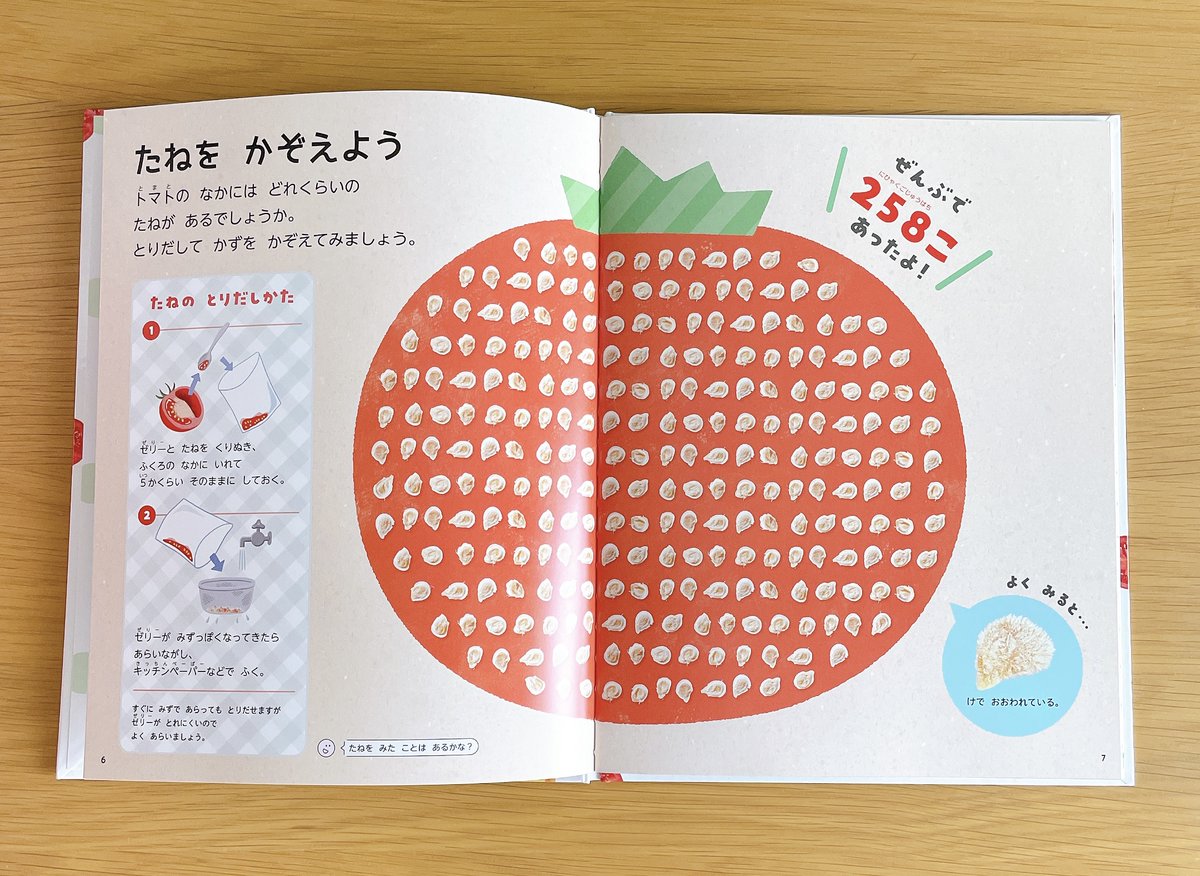 たねを かぞえよう
とまと
トマトの なかには どれくらいの
たねが あるでしょうか。
とりだして かずを かぞえてみましょう。
たねの とりだしかた
1
ぜりー
ゼリーと たねを くりぬき、
ふくろの なかに いれて
いつ
5かくらい そのままに しておく。
2
ぜりー
ゼリーが みずっぽくなってきたら
あらいながし、
きっちんぺーぱー
キッチンペーパーなどで ふく。
すぐに みずで あらっても とりだせますが
ぜりー
ゼリーが とれにくいので
よく あらいましょう。
たねを みた ことは あるかな?
6
ぜんぶで
にひゃくごじゅうはち
258こ
あったよ!
よく みると…
けで おおわれている。
7